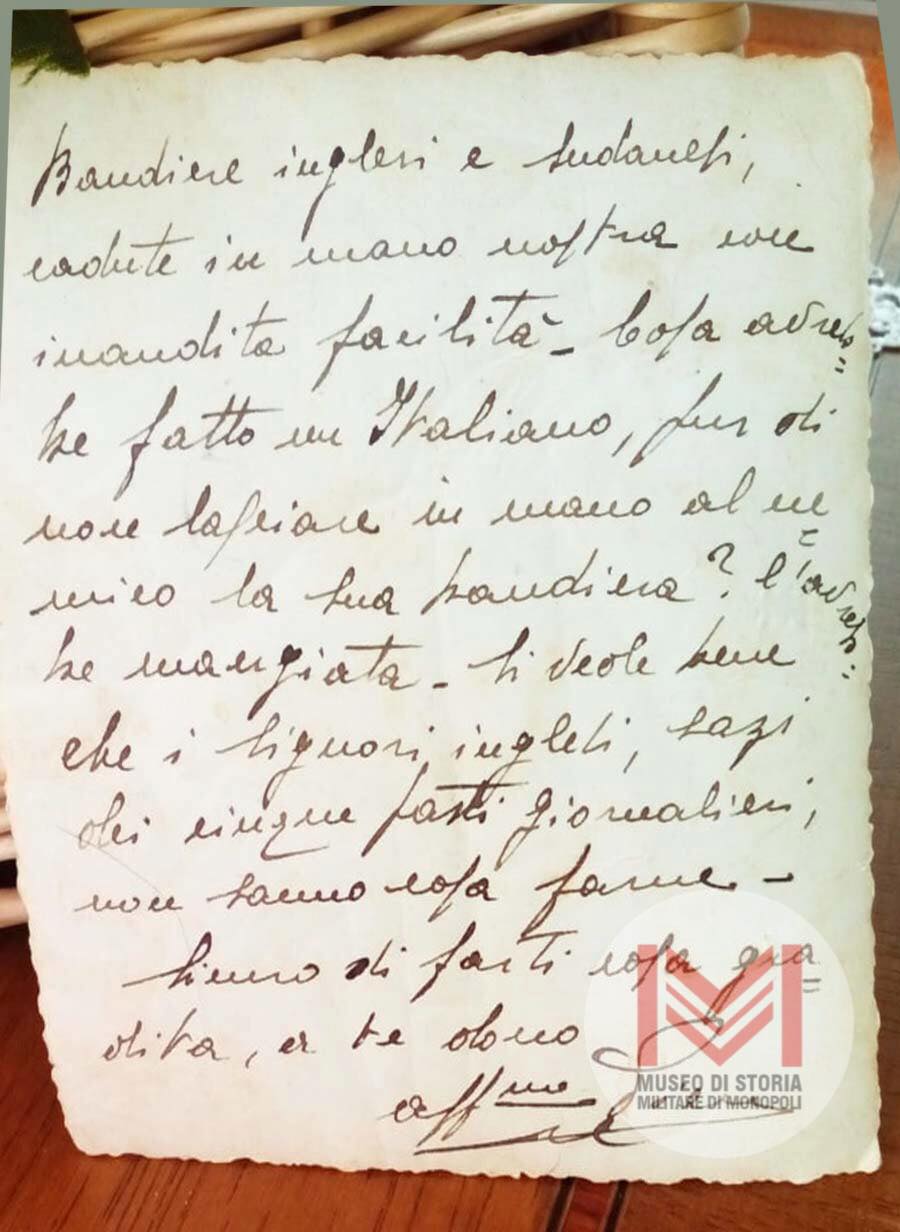 Bandiere inglesi e sudanesi,
cadute in mano nostra con
inaudita facilità - Cosa avreb=
be fatto un Italiano, pur di
non lasciare in mano al ne=
mico la sua bandiera? l'avreb=
be mangiata - Si vede bene
che i signori inglesi, sazi
dei cinque pasti giornalieri,
non sanno cosa farne -
Sicuro di farti cosa gra=
dita, a te dono
aff.mo
MUSEO DI STORIA
MILITARE DI MONOPOLI